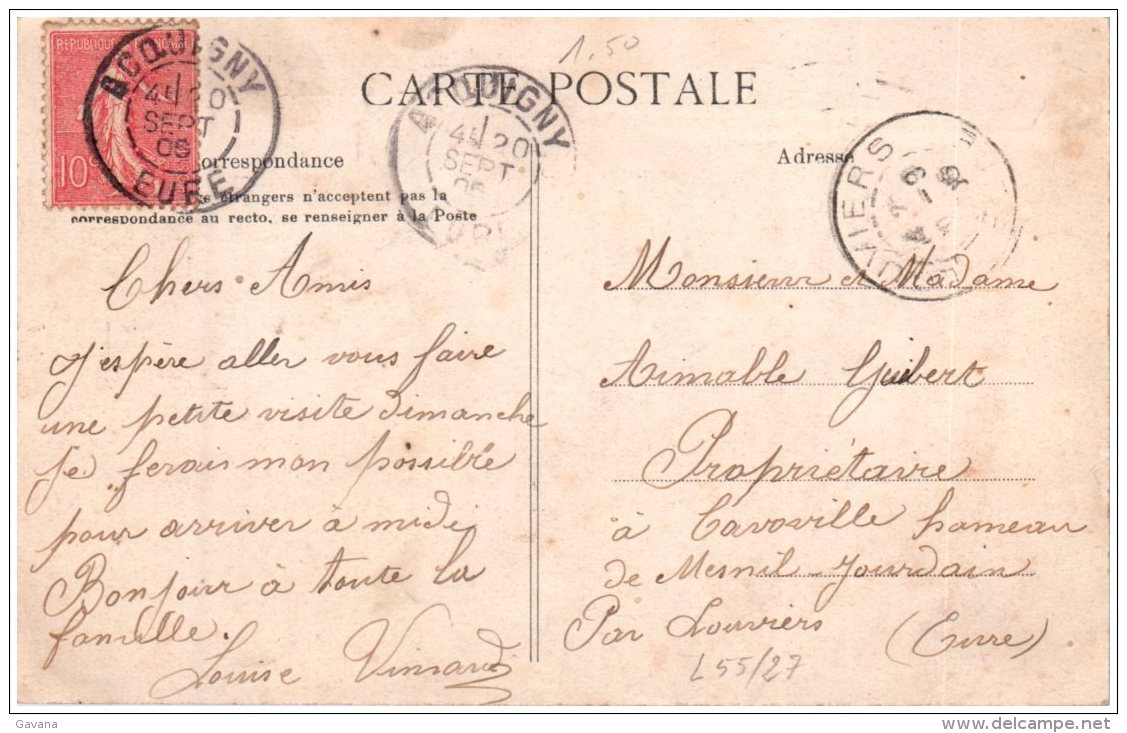 1,50
CARTE POSTALE
RÉPUBLIQUE
10c
ACQUIGNY
20
SEPT
EURE
ACQUIGNY
20
SEPT
orrespondance
étrangers n'acceptent pas la
correspondance au recto, se renseigner à la Poste
Chers Amis
J'espère aller vous faire
une petite visite dimanche
Je ferais mon possible
pour arriver à midi
Bonjour à toute la
famille.
Louise
Adresse
Monsieur et Madame
Aimable Guibert
Propriétaire
à Cavoville hameau
de Mesnil-Jourdain
Par Louviers (Eure)
L 55/27
Gavana
delcampe.net